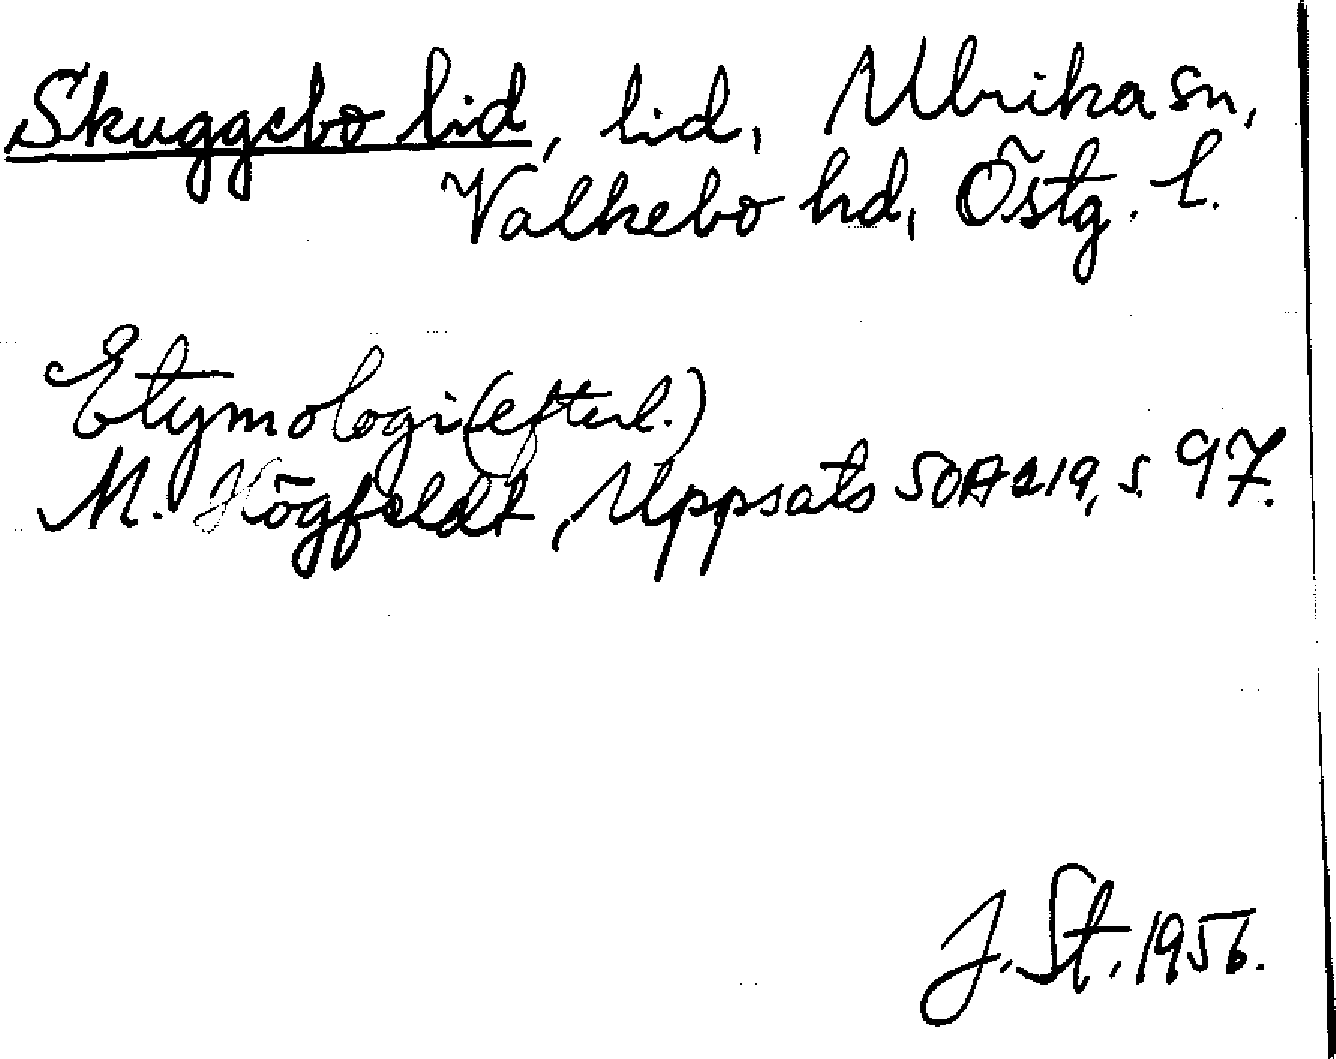 Skuggebo lid, lid, Ulrika sn,
Valkebo hd, Östg. l.
Etymologi (efterl.)
M. Högfeldt, Uppsats SOA 219, s. 97.
J. St. 1956.